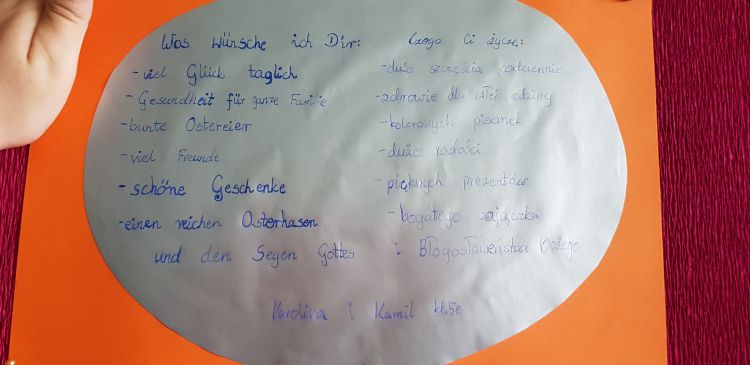 Was wünsche ich Dir:
- viel Glück taglich
- Gesundheit für ganze Familie
- bunte Ostereier
- viel Freunde
- schöne Geschenke
- einen reichen Osterhasen
und den Segen Gottes
Czego Ci życzę:
- dużo szczęścia codziennie
- zdrowie dla całej rodziny
- kolorowych pisanek
- dużo radości
- pięknych prezentów
- bogatego zajączka
i Błogosławieństwa Bożego
Karolina i Kamil kl.5e